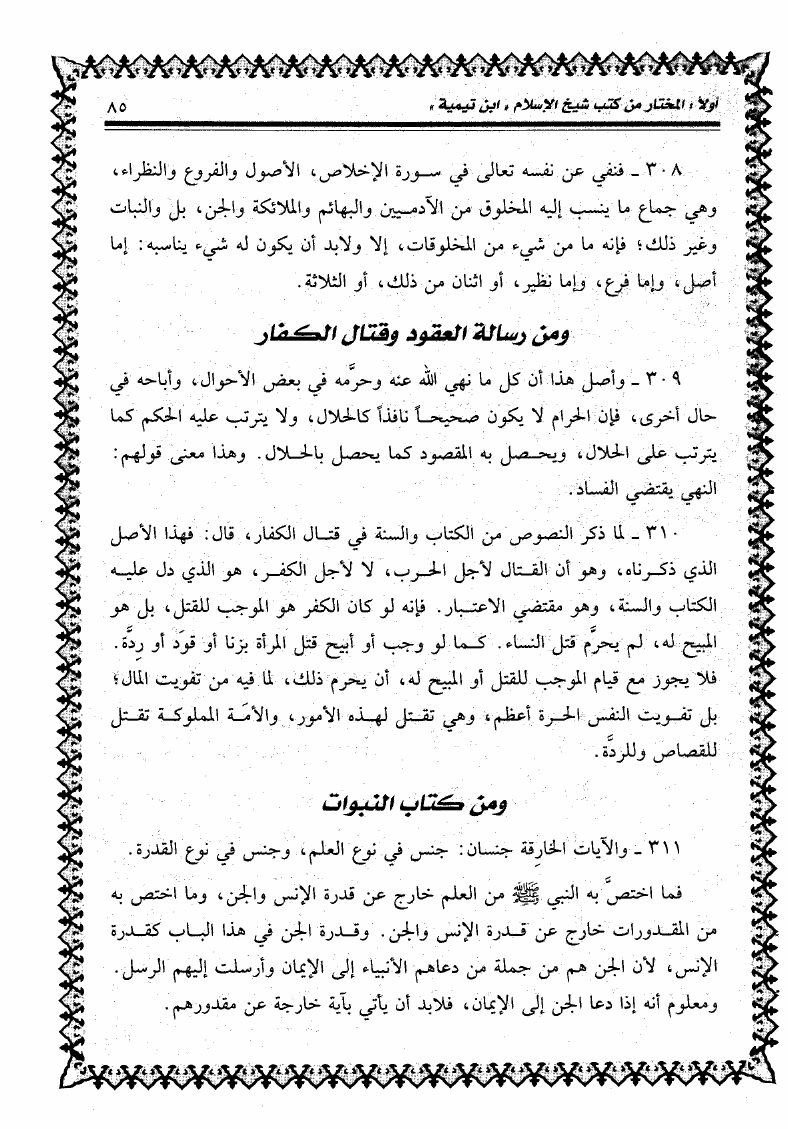 أولاً : المختار من كتب شيخ الإسلام « ابن تيمية » ٨٥
٣٠٨ ـ فنفي عن نفسه تعالى في سورة الإخلاص، الأصول والفروع والنظراء،
وهي جماع ما ينسب إليه المخلوق من الآدميين والبهائم والملائكة والجن، بل والنبات
وغير ذلك؛ فإنه ما من شيء من المخلوقات، إلا ولابد أن يكون له شيء يناسبه: إما
أصل، وإما فرع، وإما نظير، أو اثنان من ذلك، أو الثلاثة.
ومن رسالة العقود وقتال الكفار
٣٠٩ ـ وأصل هذا أن كل ما نهي الله عنه وحرَّمه في بعض الأحوال، وأباحه في
حال أخرى، فإن الحرام لا يكون صحيحاً نافذاً كالحلال، ولا يترتب عليه الحكم كما
يترتب على الحلال، ويحصل به المقصود كما يحصل بالحلال. وهذا معنى قولهم:
النهي يقتضي الفساد.
٣١٠ ـ لما ذكر النصوص من الكتاب والسنة في قتال الكفار، قال: فهذا الأصل
الذي ذكرناه، وهو أن القتال لأجل الحرب، لا لأجل الكفر، هو الذي دل عليه
الكتاب والسنة، وهو مقتضي الاعتبار. فإنه لو كان الكفر هو الموجب للقتل، بل هو
المبيح له، لم يحرَّم قتل النساء. كما لو وجب أو أبيح قتل المرأة بزنا أو قوَد أو رِدَّة.
فلا يجوز مع قيام الموجب للقتل أو المبيح له، أن يحرم ذلك، لما فيه من تفويت المال؛
بل تفويت النفس الحرة أعظم، وهي تقتل لهذه الأمور، والأمَة المملوكة تقتل
للقصاص وللردَّة.
ومن كتاب النبوات
٣١١ ـ والآيات الخارِقة جنسان: جنس في نوع العلم، وجنس في نوع القدرة.
فما اختصَّ به النبي ﷺ من العلم خارج عن قدرة الإنس والجن، وما اختص به
من المقدورات خارج عن قدرة الإنس والجن. وقدرة الجن في هذا الباب كقدرة
الإنس، لأن الجن هم من جملة من دعاهم الأنبياء إلى الإيمان وأرسلت إليهم الرسل.
ومعلوم أنه إذا دعا الجن إلى الإيمان، فلابد أن يأتي بآية خارجة عن مقدورهم.